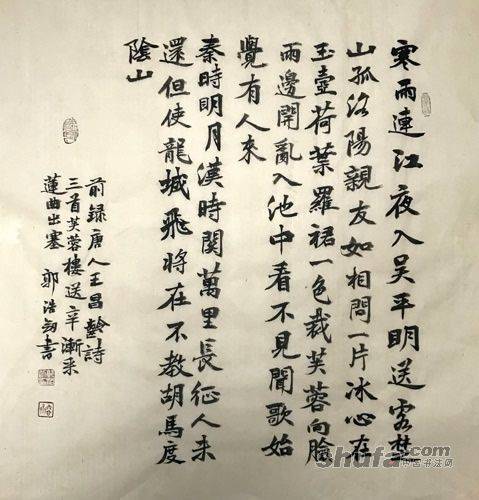 寒雨連江夜入吳平明送客楚
山孤洛陽親友如相問一片冰心在
玉壺荷葉羅裙一色裁芙蓉向臉
兩邊開亂入池中看不見聞歌始
覺有人來
秦時明月漢時関萬里長征人未
還但使龍城飛將在不教胡馬度
陰山
前録唐人王昌齡詩
三首芙蓉樓送辛漸采
蓮曲出塞 郭浩書
shufa.com